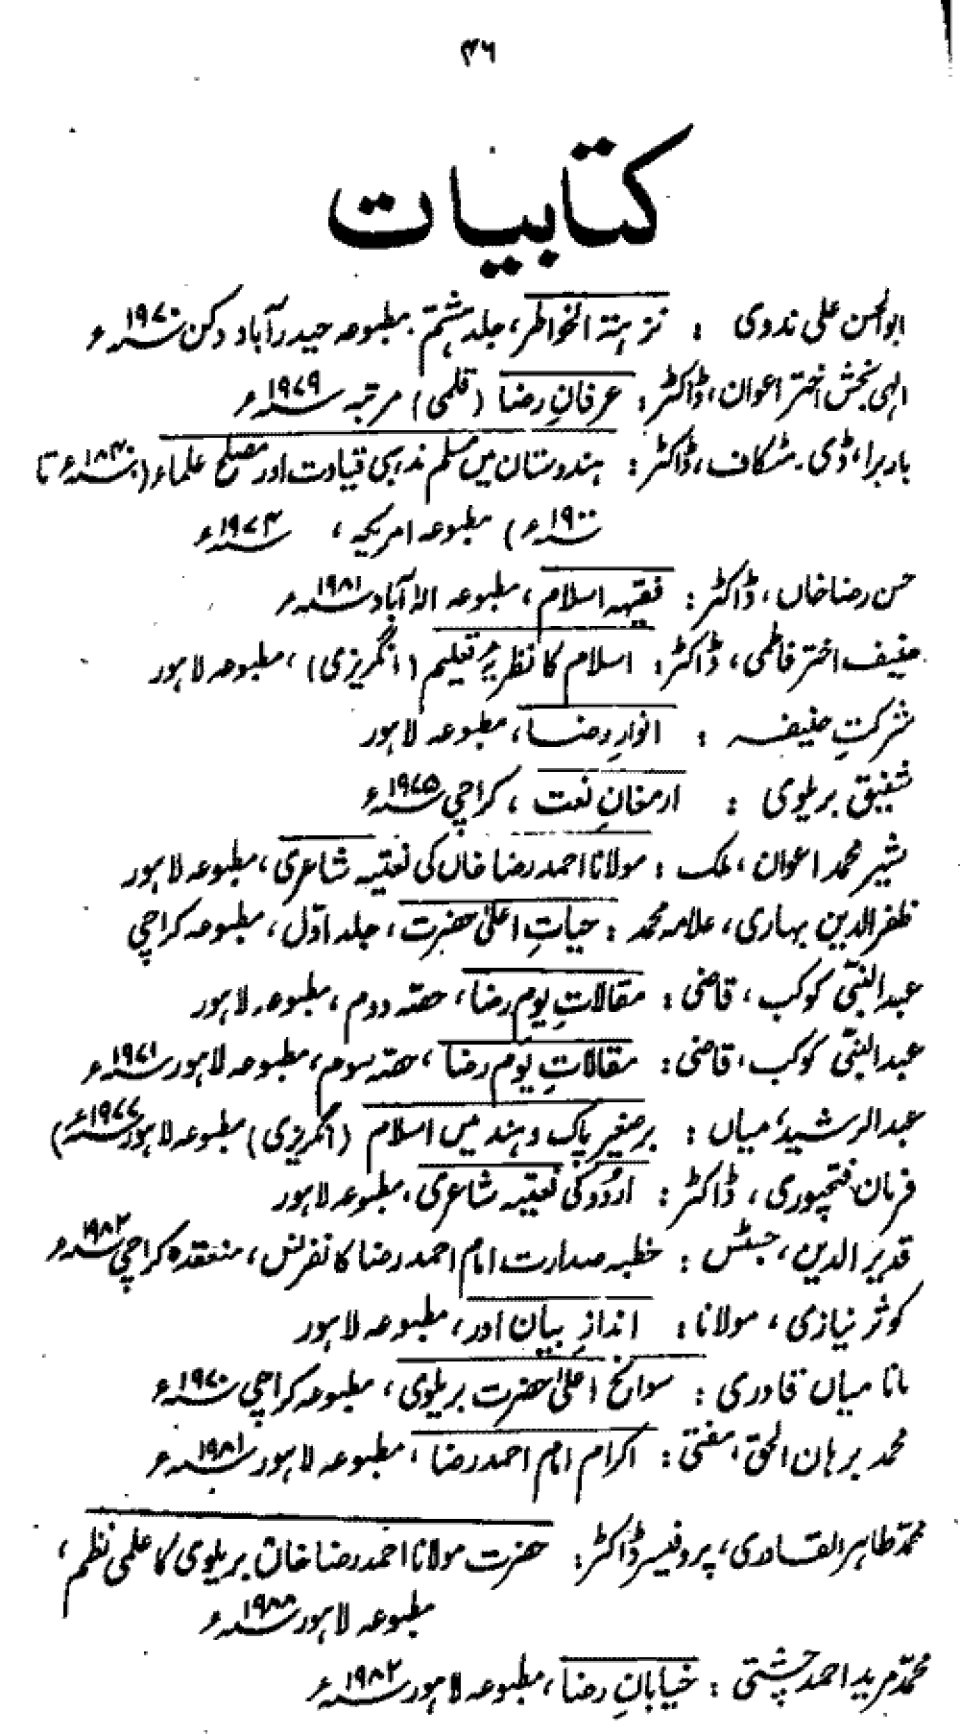 ۴۶
کتابیات
ابوالحسن علی ندوی : نزہتہ الخواطر، جلد ہشتم مطبوعہ حیدرآباد دکن ۱۹۷۰ء
الٰہی بخش اختر اعوان، ڈاکٹر : عرفانِ رضا (قلمی) مرتبہ ۱۹۷۹ء
باربرا، ڈی۔ مٹکاف، ڈاکٹر : ہندوستان میں مسلم مذہبی قیادت اور مصلح علماء (۱۸۶۰ء تا
۱۹۰۰ء) مطبوعہ امریکہ، ۱۹۷۴ء
حسن رضا خاں، ڈاکٹر : فقیہہ اسلام، مطبوعہ الہٰ آباد ۱۹۸۱ء
حنیف اختر فاطمی، ڈاکٹر : اسلام کا نظریۂ تعلیم (انگریزی)، مطبوعہ لاہور
شرکتِ حنیفہ : انوارِ رضا، مطبوعہ لاہور
شفیق بریلوی : ارمغانِ نعت، کراچی ۱۹۷۵ء
شیر محمد اعوان، ملک : مولانا احمد رضا خاں کی نعتیہ شاعری، مطبوعہ لاہور
ظفر الدین بہاری، علامہ محمد : حیاتِ اعلیٰ حضرت، جلد اوّل، مطبوعہ کراچی
عبد النبّی کوکب، قاضی : مقالاتِ یومِ رضا، حصّہ دوم، مطبوعہ لاہور
عبد النبّی کوکب، قاضی : مقالاتِ یومِ رضا، حصّہ سوم، مطبوعہ لاہور ۱۹۷۱ء
عبد الرشید، میاں : برصغیر پاک و ہند میں اسلام (انگریزی) مطبوعہ لاہور ۱۹۷۷ء)
فرمان فتحپوری، ڈاکٹر : اُردُو کی نعتیہ شاعری، مطبوعہ لاہور
قدیر الدین، جسٹس : خطبہ صدارت امام احمد رضا کانفرنس، منعقدہ کراچی ۱۹۸۲ء
کوثر نیازی، مولانا : اندازِ بیان اور، مطبوعہ لاہور
مانا میاں قادری : سوانح اعلیٰ حضرت بریلوی، مطبوعہ کراچی ۱۹۷۰ء
محمد برہان الحق، مفتی : اکرام امام احمد رضا، مطبوعہ لاہور ۱۹۸۱ء
محمّد طاہر القادری، پروفیسر ڈاکٹر : حضرت مولانا احمد رضا خاں بریلوی کا علمی نظم،
مطبوعہ لاہور ۱۹۸۸ء
محمّد مرید احمد چشتی : خیابانِ رضا، مطبوعہ لاہور ۱۹۸۲ء